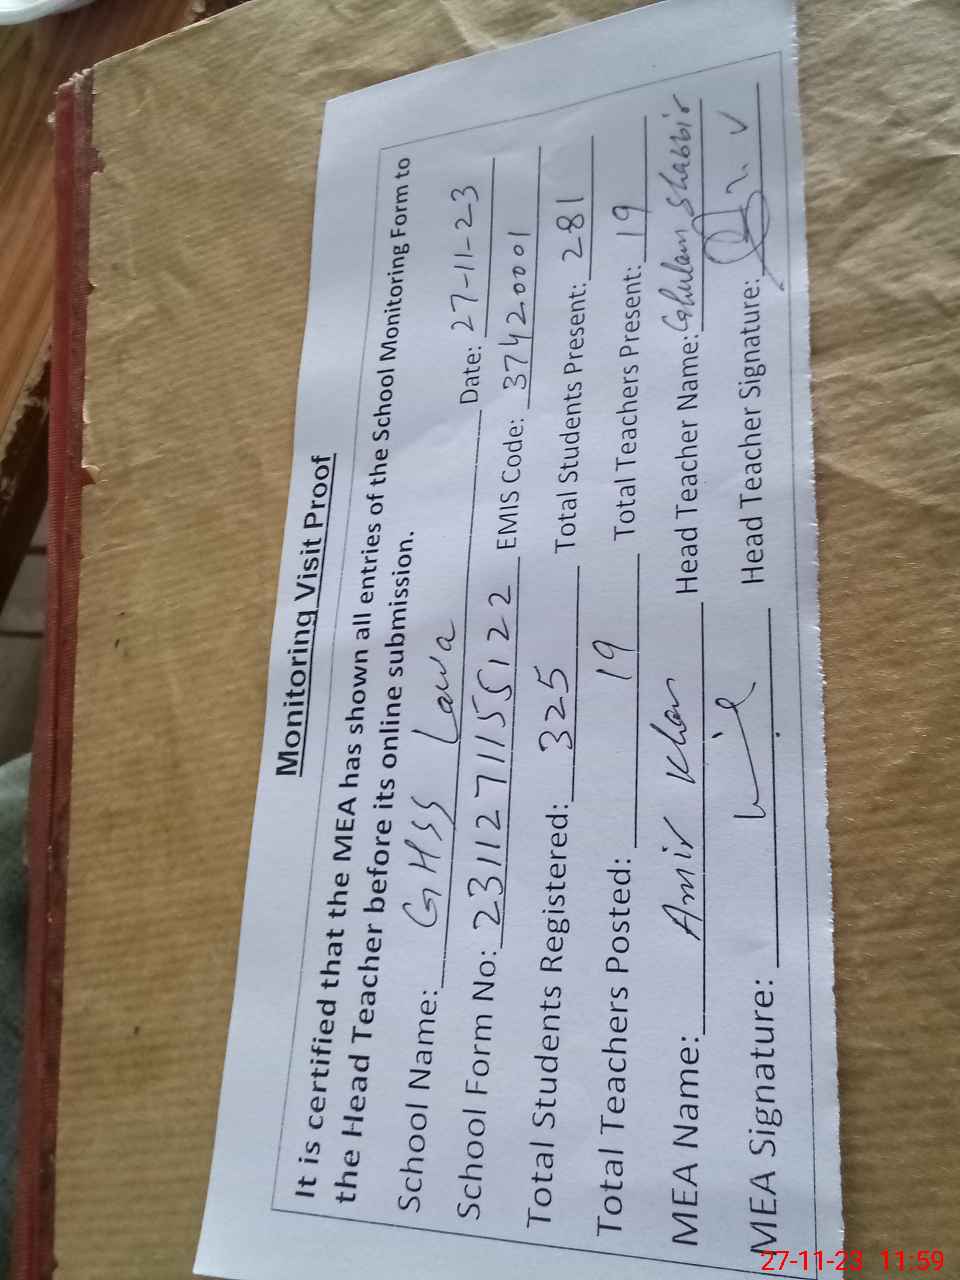 Monitoring Visit Proof
It is certified that the MEA has shown all entries of the School Monitoring Form to
the Head Teacher before its online submission.
School Name: GHSS Lawa Date: 27-11-23
School Form No: 2311271155122 EMIS Code: 37420001
Total Students Registered: 325 Total Students Present: 281
Total Teachers Posted: 19 Total Teachers Present: 19
MEA Name: Amir Khan Head Teacher Name: Ghulam Shabbir
MEA Signature: Head Teacher Signature:
27-11-23 11:59